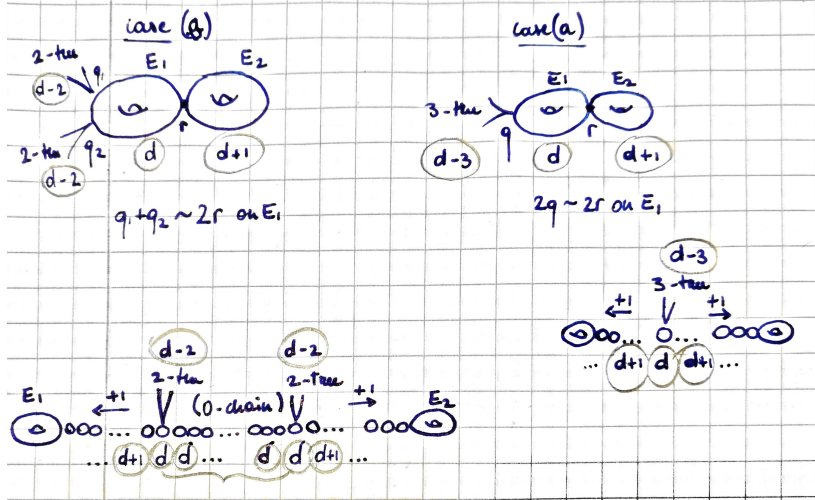 case (b)
2-tree
q₁
E₁
E₂
d-2
2-tree
q₂
r
d
d+1
d-2
q₁+q₂ ~ 2r on E₁
case (a)
E₁
E₂
3-tree
q
r
d-3
d
d+1
2q ~ 2r on E₁
d-3
3-tree
+1
+1
...
...
... d+1 d d+1 ...
d-2
d-2
2-tree
2-tree
E₁
+1
(0-chain)
+1
E₂
...
...
...
...
... d+1 d d ... d d d+1 ...